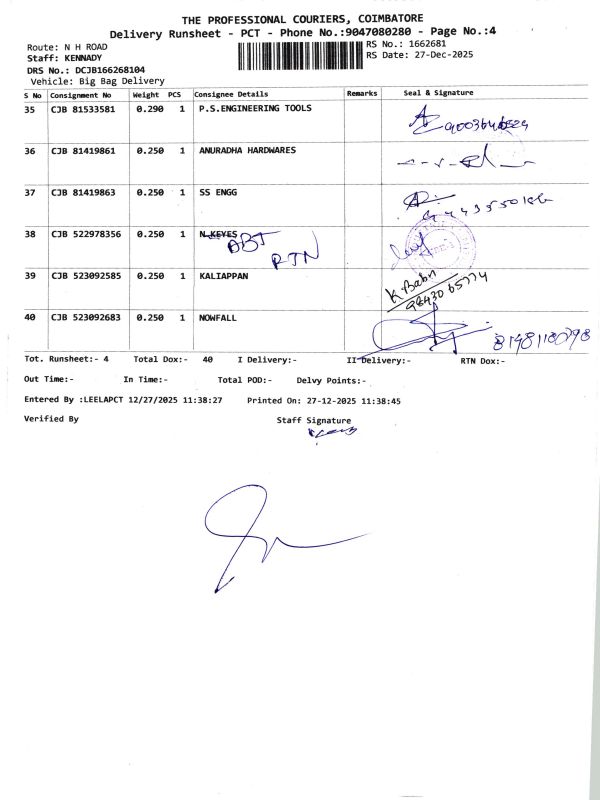 THE PROFESSIONAL COURIERS, COIMBATORE
Delivery Runsheet - PCT - Phone No.:9047080280 - Page No.:4
Route: N H ROAD
Staff: KENNADY
DRS No.: DCJB166268104
Vehicle: Big Bag Delivery
RS No.: 1662681
RS Date: 27-Dec-2025
S No Consignment No Weight PCS Consignee Details Remarks Seal & Signature
35 CJB 81533581 0.290 1 P.S.ENGINEERING TOOLS
36 CJB 81419861 0.250 1 ANURADHA HARDWARES
37 CJB 81419863 0.250 1 SS ENGG
38 CJB 522978356 0.250 1 N.KEYES
RTN
39 CJB 523092585 0.250 1 KALIAPPAN
K.Babu
9843065774
40 CJB 523092683 0.250 1 NOWFALL
8148110798
Tot. Runsheet:- 4 Total Dox:- 40 I Delivery:- II Delivery:- RTN Dox:-
Out Time:- In Time:- Total POD:- Delvy Points:-
Entered By :LEELAPCT 12/27/2025 11:38:27 Printed On: 27-12-2025 11:38:45
Verified By Staff Signature